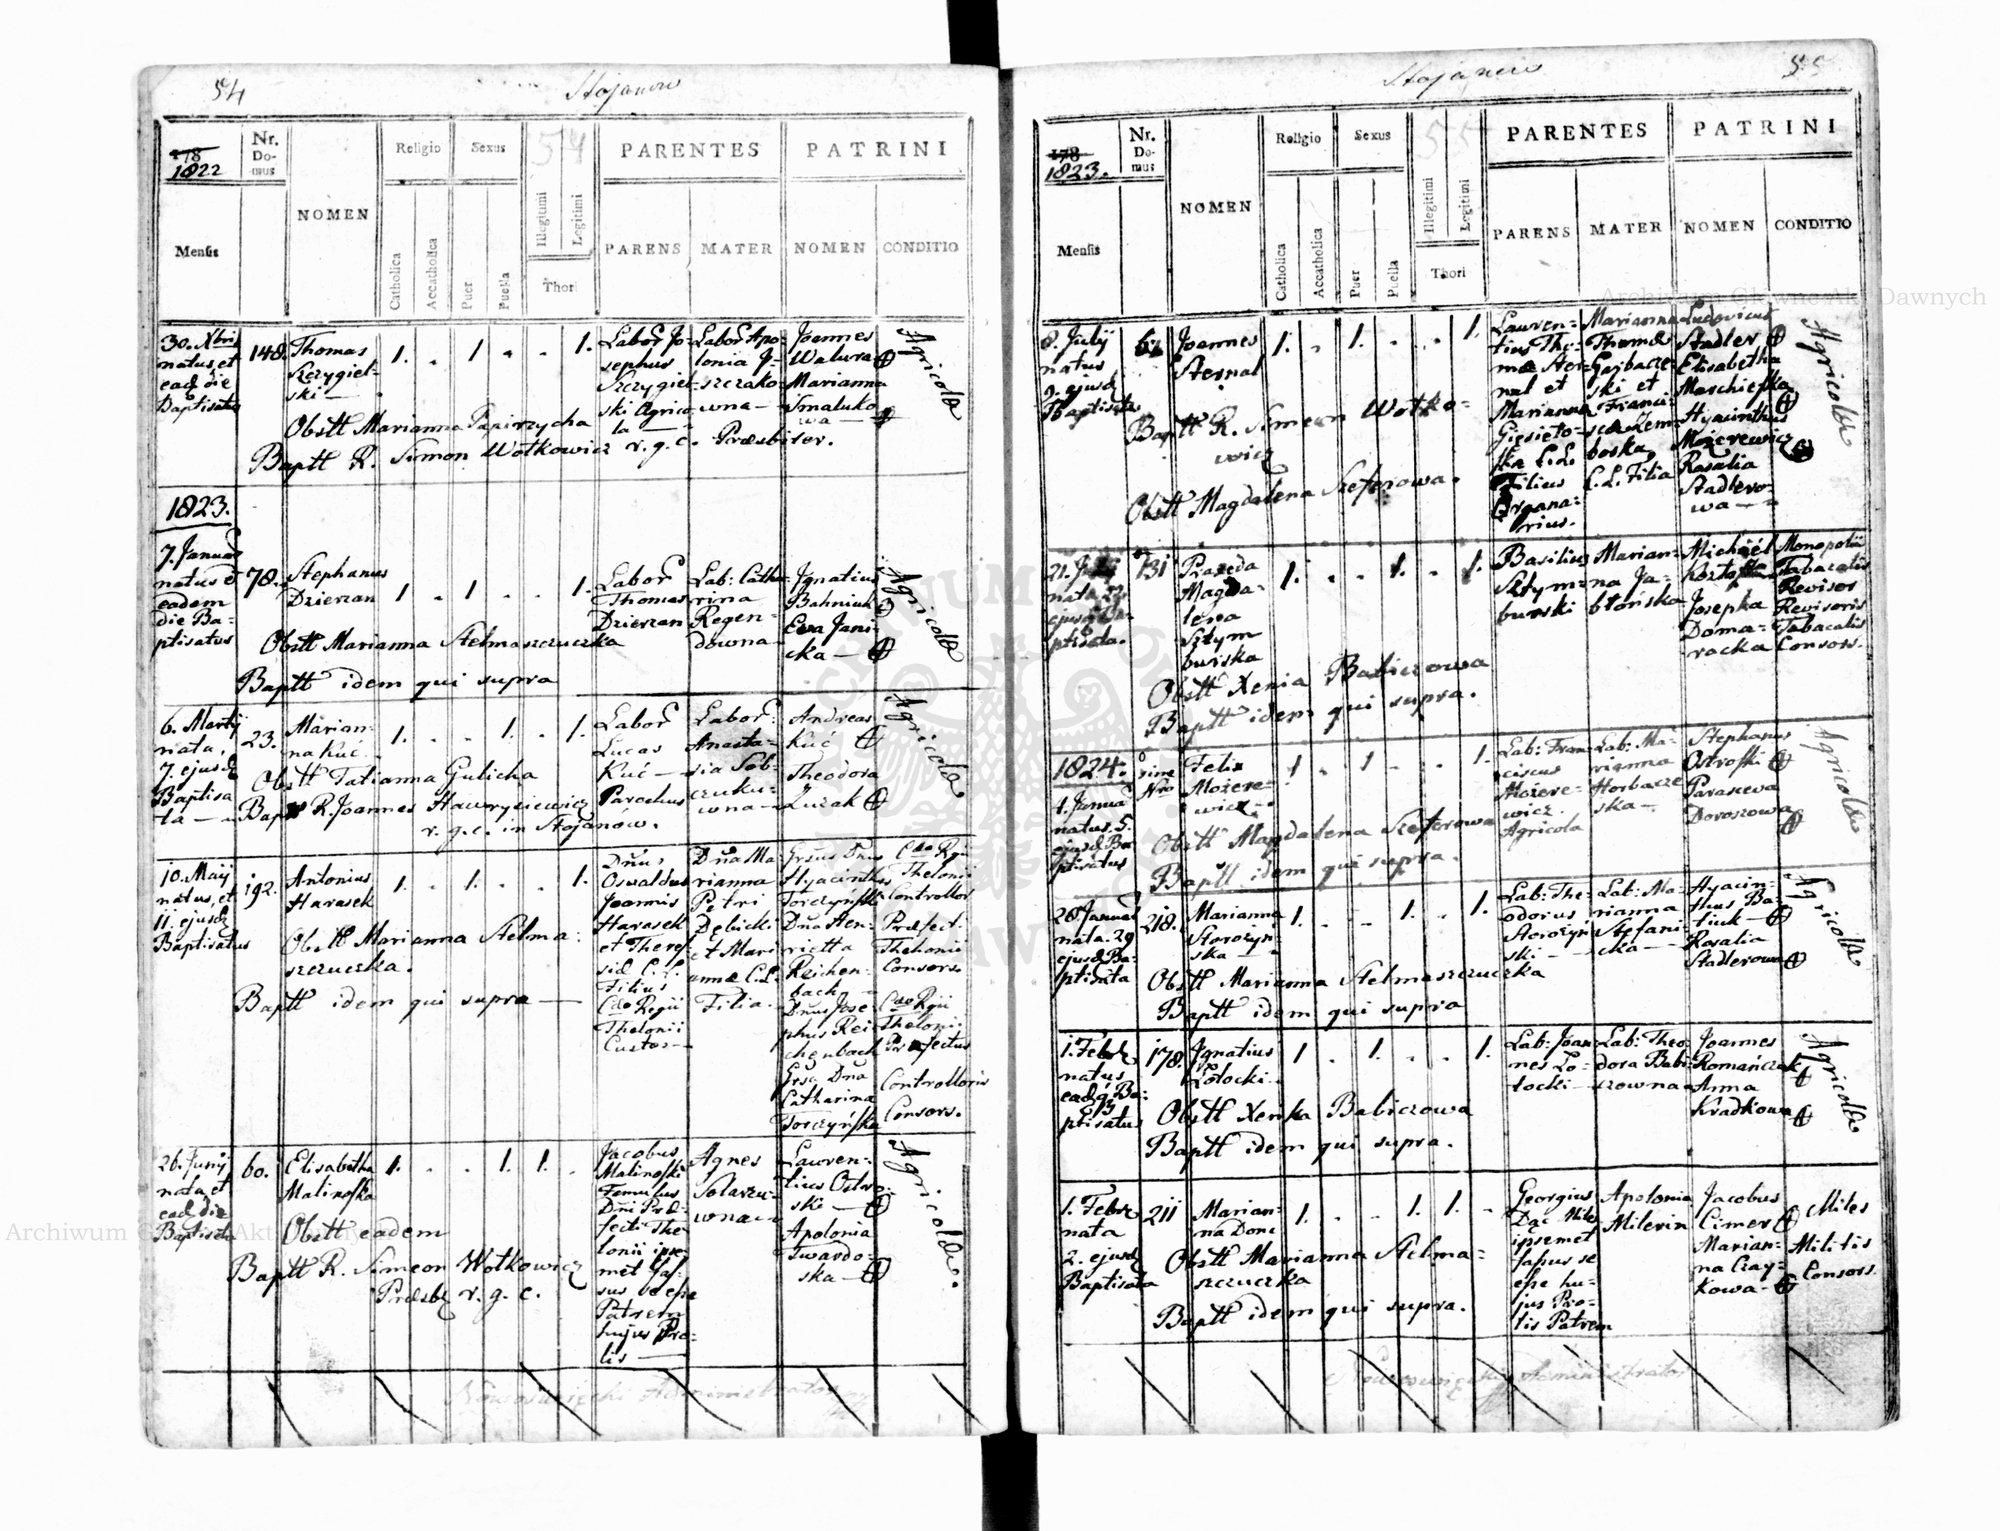 54
Stojanow
178
1822
Nr. Domus
NOMEN
Religio
Sexus
54
PARENTES
PATRINI
Mensis
Catholica
Accatholica
Puer
Puella
Illegitimi
Legitimi
Thori
PARENS
MATER
NOMEN
CONDITIO
30. Xbris
natus, et
ead die
Baptisatus
148.
Thomas
Szczygiel-
ski —
1. . 1 . . 1.
Labor Jo-
sephus
Szczygiel-
ski Agrico-
la —
Labor Apo-
lonia J-
szczako-
wna —
Joannes
Walura
Marianna
Smaluko-
wa —
Agricolæ
Obstt Marianna Papirzycha
Baptt R. Simon Wotkowicz r. g. c. Præsbiter.
1823.
7. Januar
natus et
eadem
die Ba-
ptisatus
78.
Stephanus
Dzierzan
1 . 1 . . 1.
Labor
Thomas
Dzierzan
Lab: Catha-
rina
Regen-
downa —
Ignatius
Bahniuk
Eva Jani-
cka —
Agricolæ
Obstt Marianna Stelmaszczuczka
Baptt idem qui supra
6. Martij
nata,
7. ejusd
Baptisa
ta —
23.
Marian-
na Kuć
1. . . 1. . 1.
Labor
Lucas
Kuć —
Parochus
Labor:
Anasta-
sia Sob-
czuku-
wna —
Andreas
Kuć
Theodora
Zuzak
Agricolæ
Obstt Tatianna Gulicha
Baptt R. Joannes Hawrysiewicz
r. g. c. in Stojanow.
10. Maij
natus, et
11. ejusd
Baptisatus
192.
Antonius
Harasek
1. . 1. . . 1.
Dnus
Osvaldus
Joannis
Harasek
et Theref-
siæ C. L.
Filius
Cæo Regii
Thelonii
Custos —
Dna Ma-
rianna
Petri
Dębicki
et Mari
annæ C. L.
Filia.
Grsus Dnus
Hyacinthus
Torczyński
Dna Hen-
rietta
Reichen-
bach —
Dnus Jose-
phus Rei-
chenbach
Grsa Dna
Catharina
Torczyńska
Cæo Rgii
Thelonii
Controllor
Præfect.
Thelonii
Consors.
Cæo Rgii
Thelonii
Præfectus
Controlloris
Consors.
Obstt Marianna Stelma-
szczuczka.
Baptt idem qui supra —
26. Junij
nata, et
ead die
Baptisata
60.
Elisabetha
Malinofska
1. . . 1. 1. .
Jacobus
Malinofski
Famulus
Dni Præ-
fecti The-
lonii ipse-
met fas-
sus se eße
Patrem
hujus Pro-
lis —
Agnes
Solarzu-
wna —
Lauren-
tius Ostro-
ski —
Apolonia
Twardo-
ska —
Agricolæ.
Obstt eadem
Baptt R. Simeon Wotkowicz
Præsb r. g. c.
Nowosancki Administrator
Stojanow
55
178
1823.
Nr. Domus
NOMEN
Religio
Sexus
55
PARENTES
PATRINI
Mensis
Catholica
Accatholica
Puer
Puella
Illegitimi
Legitimi
Thori
PARENS
MATER
NOMEN
CONDITIO
8. Julij
natus
9. ejusd
Baptisatus
Joannes
Sternal
1. . 1. . . 1.
Lauren-
tius Tho-
mæ Ster-
nal et
Marianna
Filius
Organa-
rius.
Marianna
Thomæ
Garbacze-
ski et
Franci-
scæ Zem-
boska
C. L. Filia
Ludovicus
Stadler
Elisabetha
Marchiefka
Hyacinthus
Możerewicz
Rosalia
Stadlero-
wa —
Agricolæ
Baptt R. Simeon Wotko-
wicz
Obstt Magdalena Szeferowa.
21. Julij
nata 22
ejusd Ba-
ptisata.
131
Praxeda
Magda-
lena
Sztym
burska
1. . . 1. . 1.
Basilius
Sztym-
burski
Marian-
na Ja-
błońska
Michael
Josepha
Doma-
racka
Monopolii
Tabacalis
Revisor
Revisoris
Tabacalis
Consors.
Obstt Xenia Babiczowa
Baptt idem qui supra.
1824.
4. Janua
natus. 5.
ejusd Ba-
ptisatus
sine
Nro
Felix
Możere-
wicz —
1 . 1 . . 1.
Lab: Fran-
ciscus
Możere-
wicz.
Agricola
Lab: Ma-
rianna
Horbacze
ska —
Stephanus
Ostrofski
Parasceva
Doroszowa
Agricolæ
Obstt Magdalena Szeferowa
Baptt idem qui supra.
28. Januar
nata. 29
ejusd Ba-
ptisata
218.
Marianna
Storożyn-
ska —
1. . . 1. . 1.
Lab: The-
odorus
Storożyn
ski —
Lab: Ma-
rianna
Stefani-
cka —
Hyacin-
thus Ba-
tiuk —
Rosalia
Stadlerowa
Agricolæ
Obstt Marianna Stelmaszczuczka
Baptt idem qui supra
1. Febr
natus
ead. Ba-
ptisatus
178.
Ignatius
Łotocki.
1 . 1. . . 1.
Lab: Joan-
nes Ło-
tocki —
Lab: Theo
dora Babi-
czowna
Joannes
Romańczuk
Anna
Kradkowa
Agricolæ
Obstt Xenka Babiczowa
Baptt idem qui supra.
1. Febr
nata
2. ejusd
Baptisata
211
Marian-
na Donc
1. . . 1. 1. .
Georgius
Dąc Miles
ipsemet
fassus se
eße hu-
jus Pro-
lis Patrem
Apolonia
Milerin
Jacobus
Cimer
Marian-
na Czay-
kowa —
Miles
Militis
Consors.
Obstt Marianna Stelma-
szczuczka
Baptt idem qui supra.
Archiwum Główne Akt Dawnych